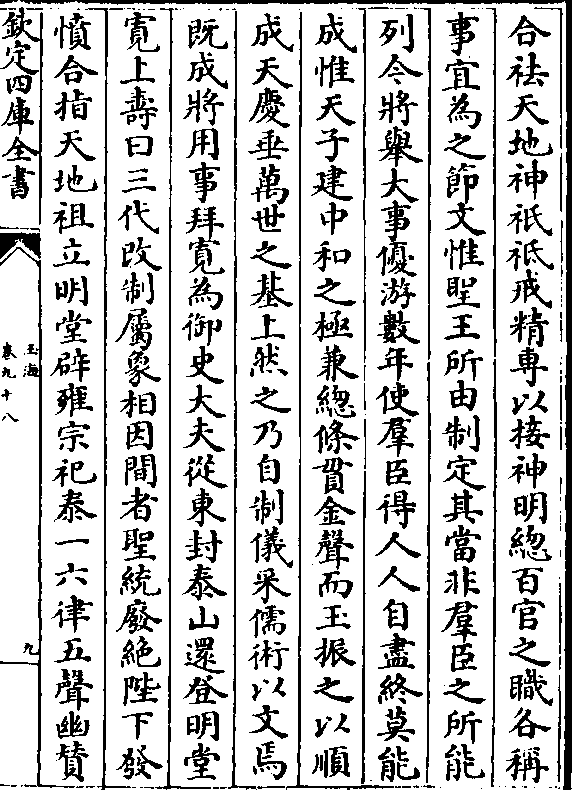 合祛天地神祇祗戒精専以接神明緫百官之職各稱
事宜為之節文惟聖王所由制定其當非羣臣之所能
列今將舉大事優游數年使羣臣得人人自盡終莫能
成惟天子建中和之極兼緫條貫金聲而玉振之以順
成天慶垂萬世之基上然之乃自制儀采儒術以文焉
既成將用事拜寛為御史大夫從東封泰山還登明堂
寛上壽曰三代改制屬象相因間者聖統廢絶陛下發
憤合指天地祖立明堂辟雍宗祀泰一六律五聲幽賛
欽定四庫全書
玉海
卷九十八
九